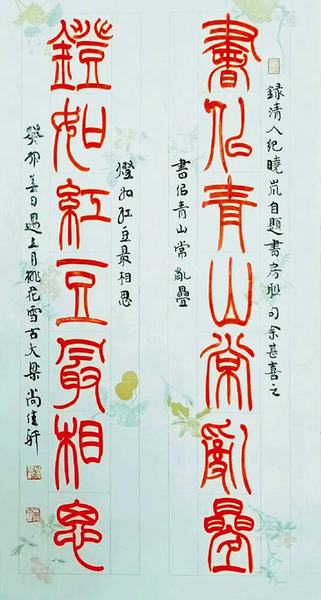 録清人紀曉嵐自題書房聯句余甚喜之
書佀青山常亂疊
書佀青山常亂疊
燈如紅豆最相思
鐙如紅豆最相思
癸卯春日遇三月桃花雪古大梁尚佳軒